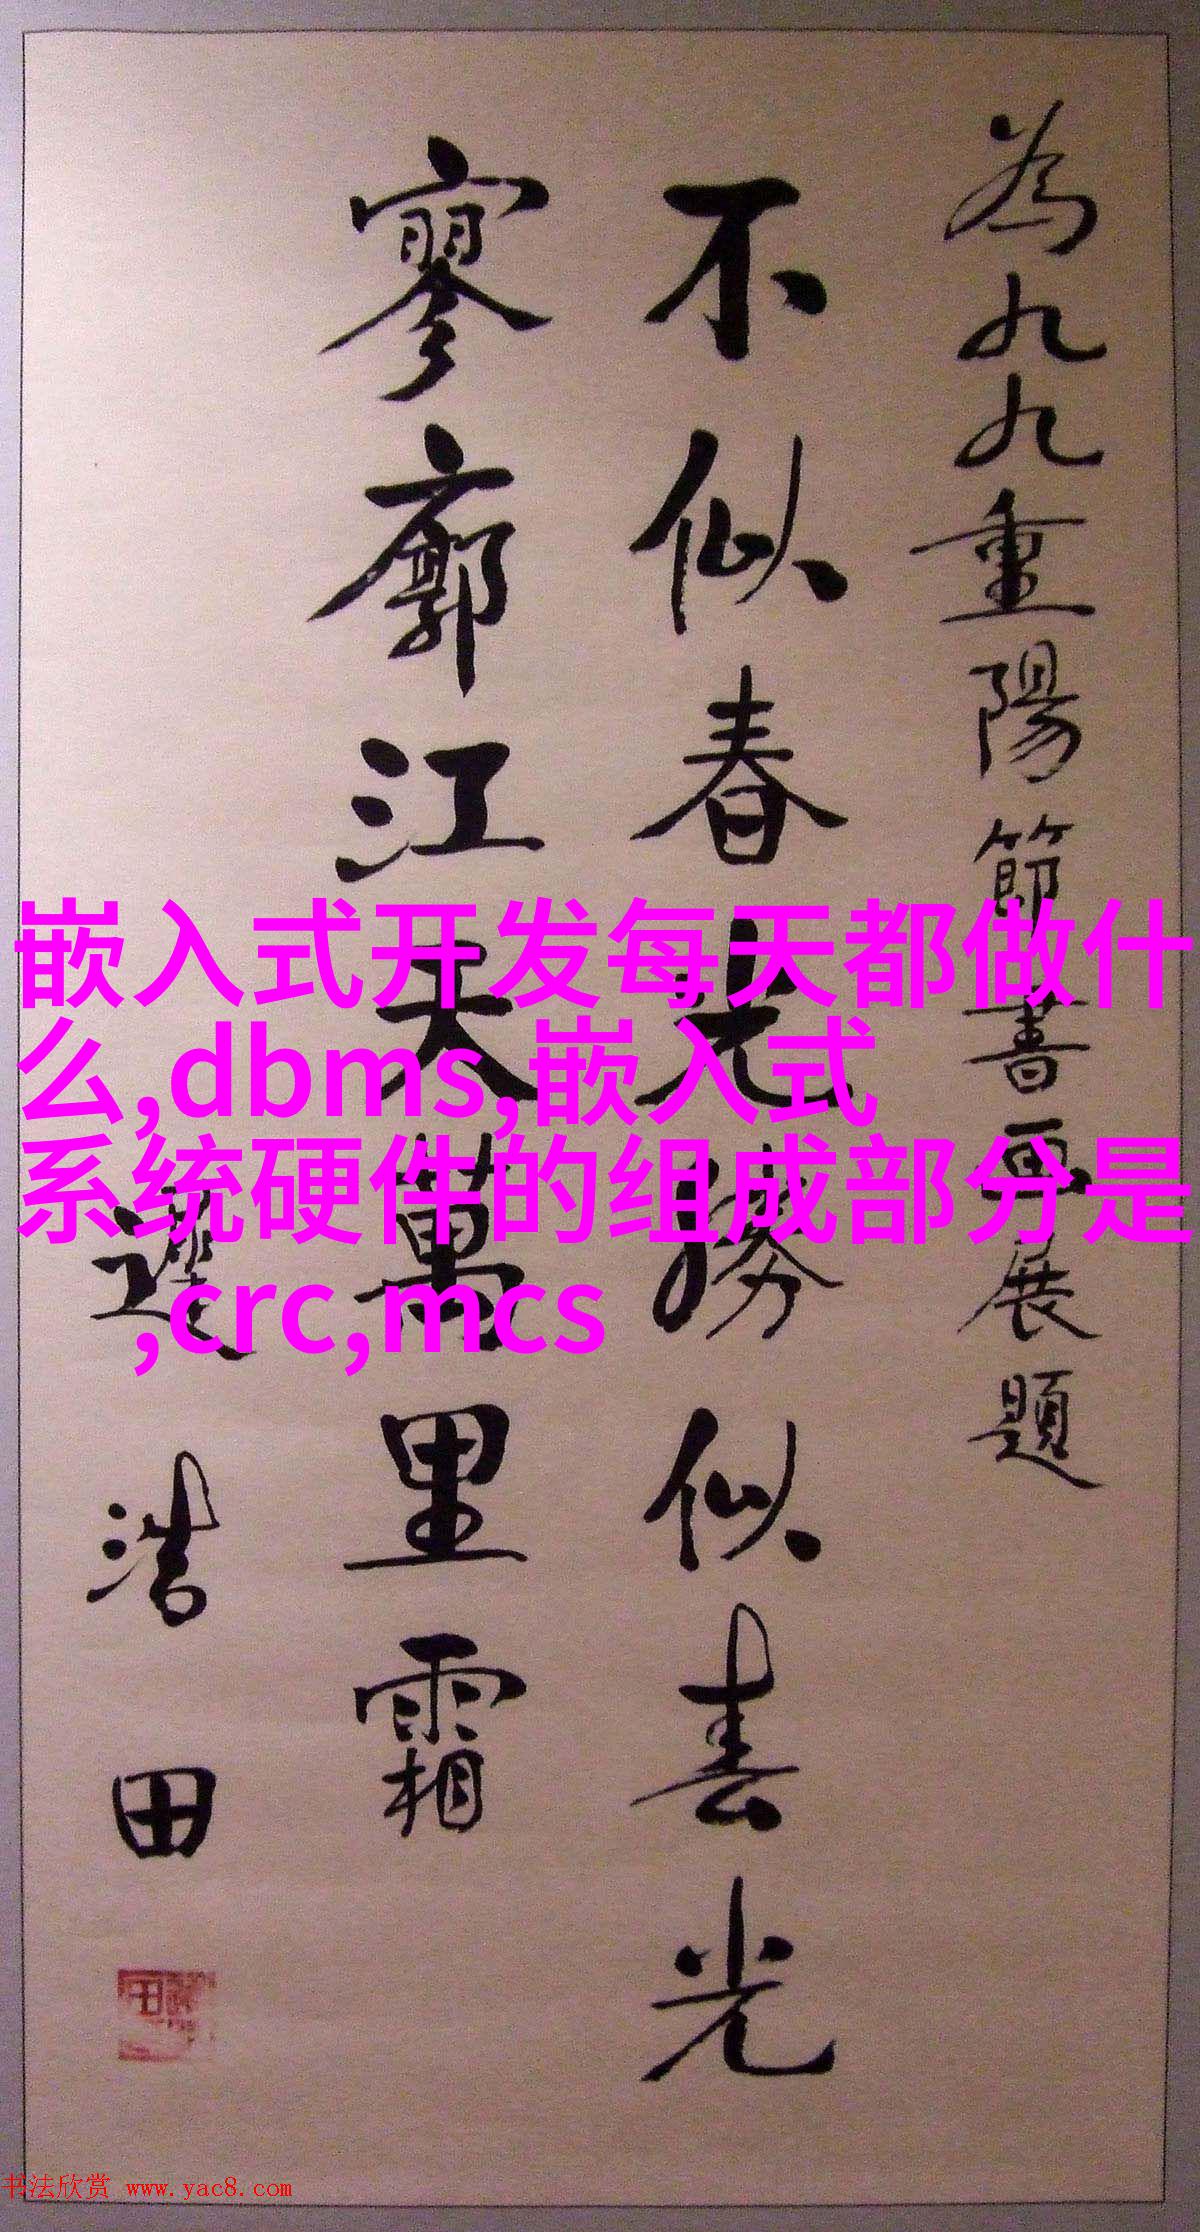 為九九重陽節書画展題
不似春光勝似春光
寥廓江天萬里霜
浩田
嵌入式开发每天都做什
么,dbms,嵌入式
系统硬件的组成部分是
,crc,mcs
书法欣赏 www.yac8.com